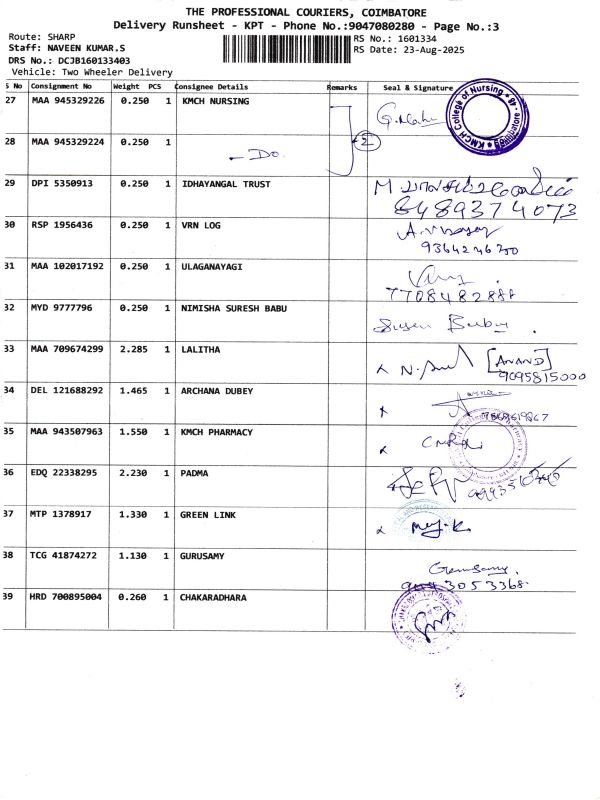 THE PROFESSIONAL COURIERS, COIMBATORE
Delivery Runsheet - KPT - Phone No.:9047080280 - Page No.:3
Route: SHARP
RS No.: 1601334
Staff: NAVEEN KUMAR.S
RS Date: 23-Aug-2025
DRS No.: DCJB160133403
Vehicle: Two Wheeler Delivery
S No Consignment No Weight PCS Consignee Details Remarks Seal & Signature
27 MAA 945329226 0.250 1 KMCH NURSING
KMCH College of Nursing
28 MAA 945329224 0.250 1 - Do.
29 DPI 5350913 0.250 1 IDHAYANGAL TRUST
8489374073
30 RSP 1956436 0.250 1 VRN LOG
31 MAA 102017192 0.250 1 ULAGANAYAGI
32 MYD 9777796 0.250 1 NIMISHA SURESH BABU
33 MAA 709674299 2.285 1 LALITHA
[ANAND]
9095815000
34 DEL 121688292 1.465 1 ARCHANA DUBEY
35 MAA 943507963 1.550 1 KMCH PHARMACY
36 EDQ 22338295 2.230 1 PADMA
37 MTP 1378917 1.330 1 GREEN LINK
38 TCG 41874272 1.130 1 GURUSAMY
Gurusamy
39 HRD 700895004 0.260 1 CHAKARADHARA